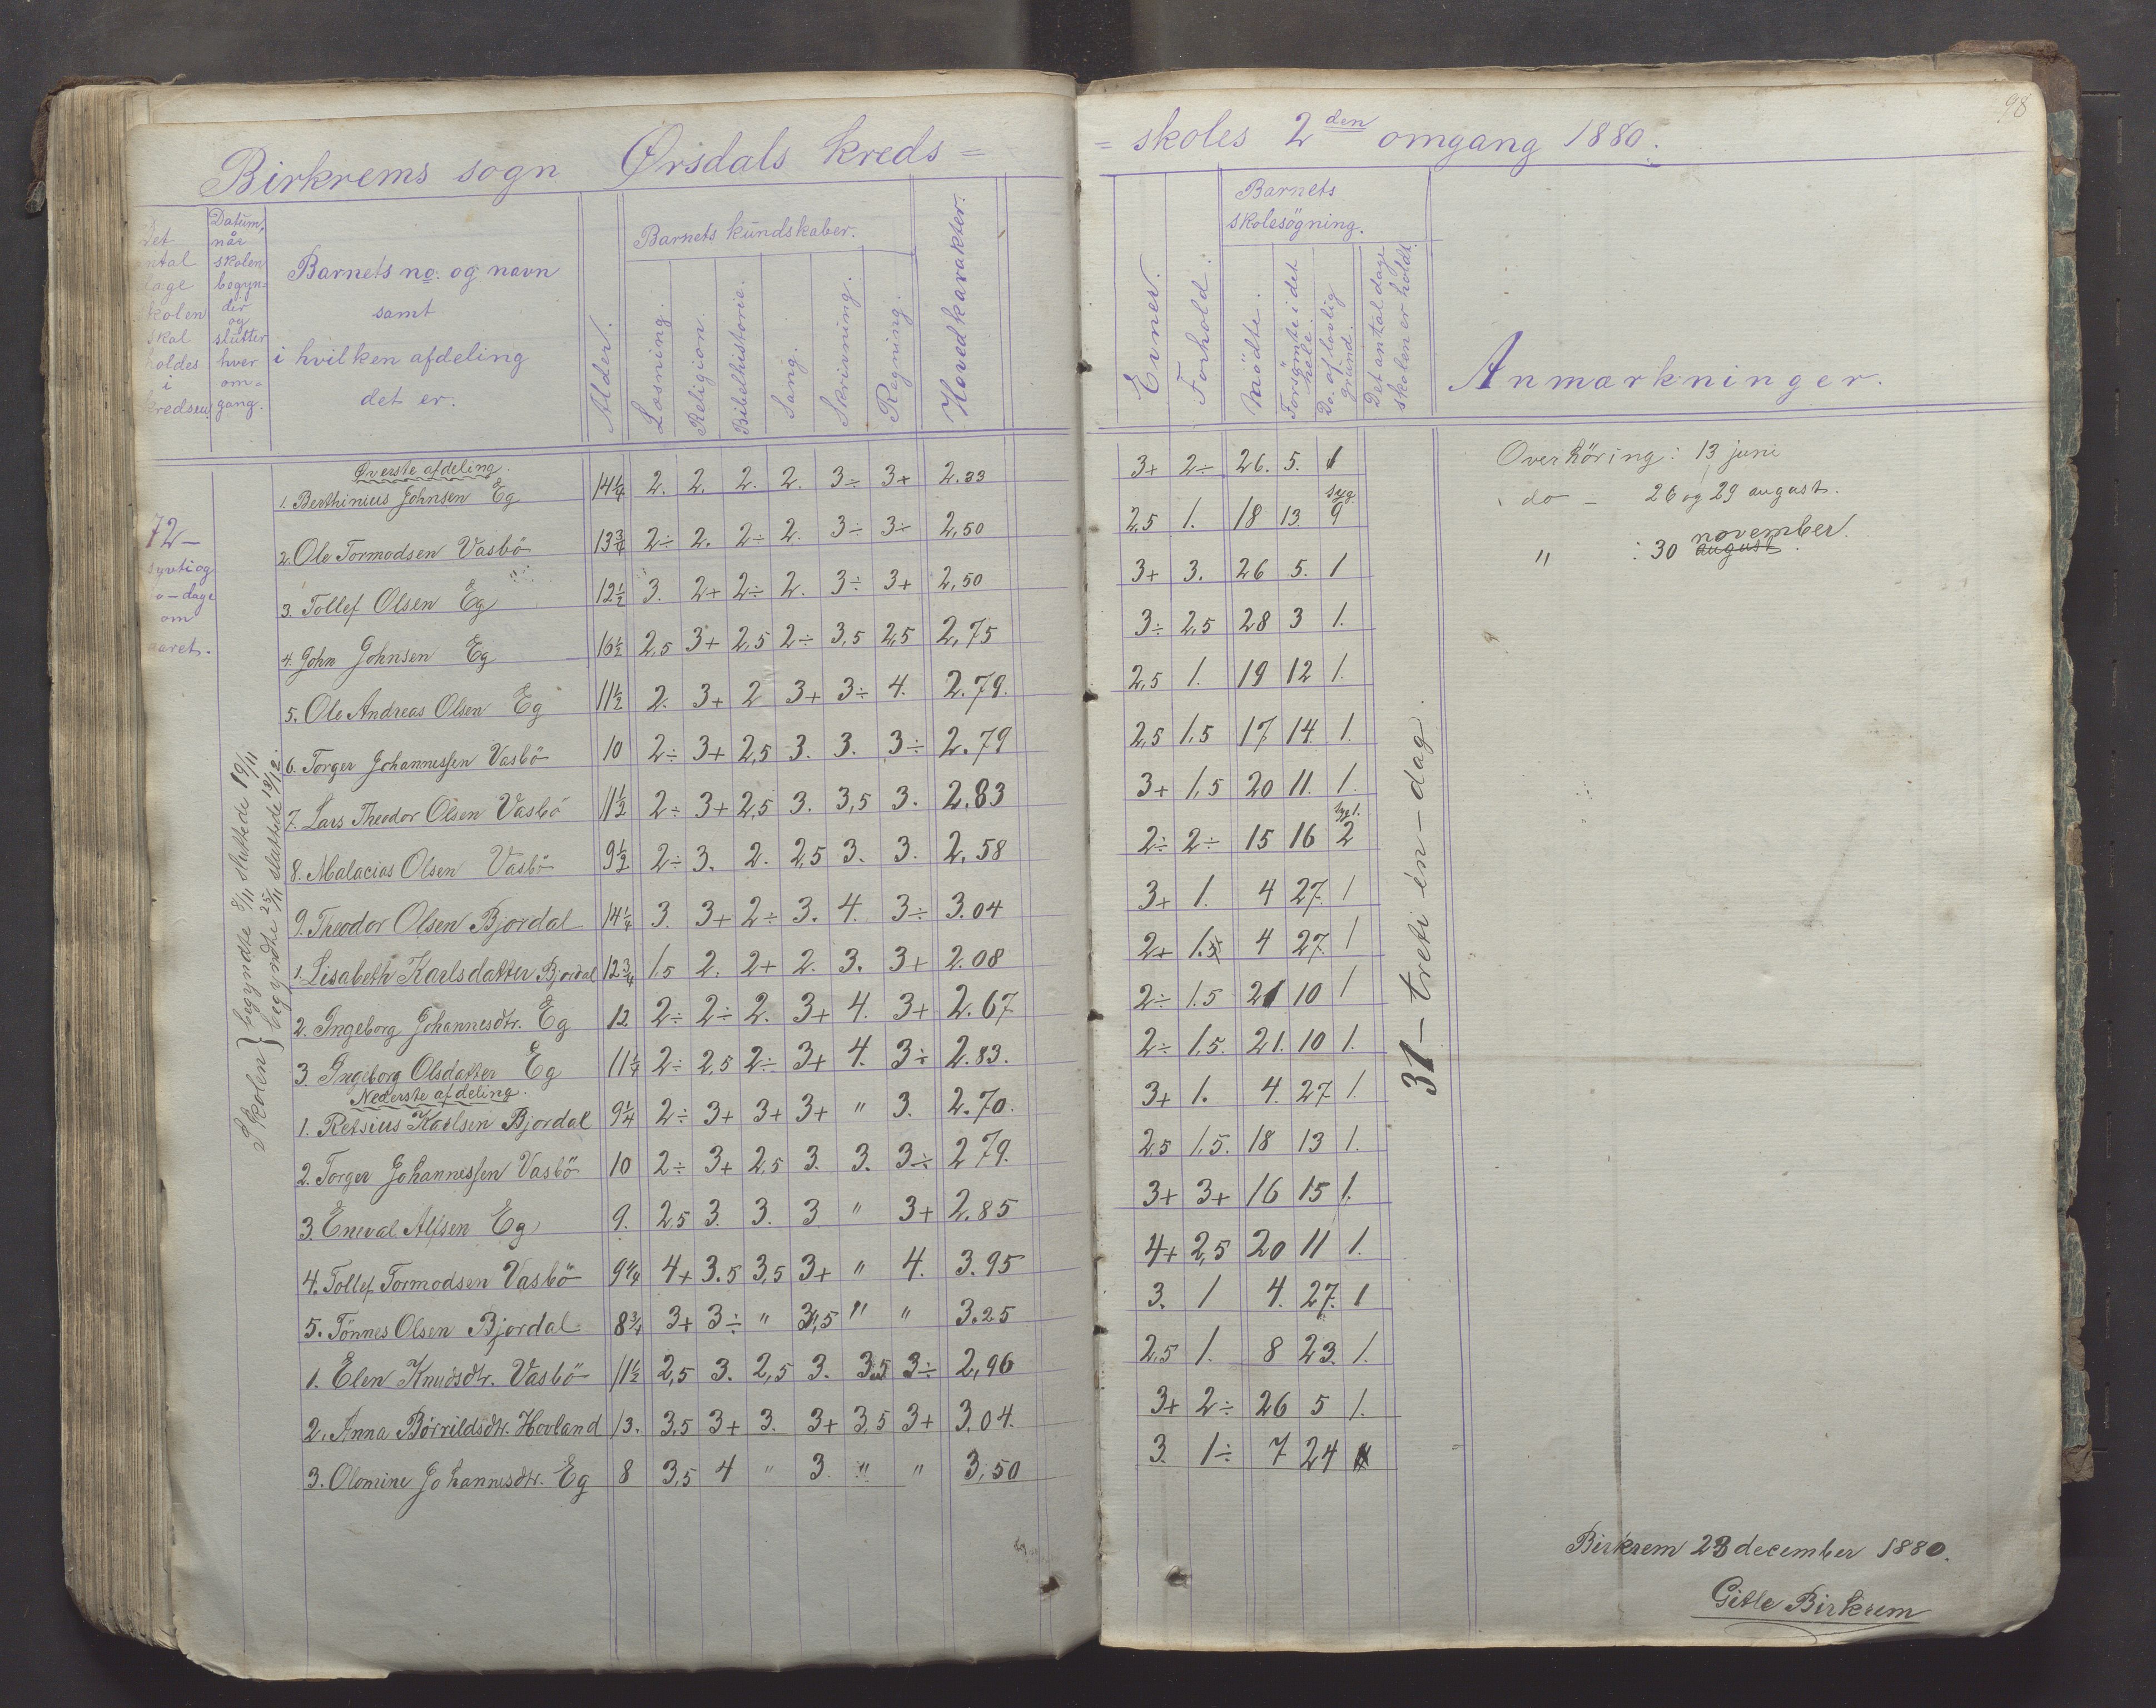 98
Birkrems sogn Ørsdals kreds =
= skoles 2den omgang 1880.
Det antal dage skolen skal holdes i kredsen
Datum, når skolen begynder og slutter hver omgang.
Barnets no. og navn
samt
i hvilken afdeling
det er.
Alder.
Barnets kundskaber.
Læsning.
Religion.
Bibelhistorie.
Sang.
Skrivning.
Regning.
Hovedkarakter.
Evner.
Forhold.
Barnets skolesögning.
Mödte.
Forsömte i det hele.
Do. af lovlig grund.
Det antal dage skolen er holdt.
Anmærkninger.
72 – syvti og to – dage om aaret.
Skolen } begyndte 8/11 sluttede 19/11
begyndte 25/11 sluttede 19/12.
Øverste afdeling.
1. Berthinius Johnsen Eg 14¼ 2. 2. 2. 2. 3÷ 3+ 2.33 3+ 2÷ 26. 5. 1
2. Ole Tormodsen Vasbö 13¾ 2÷ 2. 2÷ 2. 3÷ 3÷ 2,50 2,5 1. 18 13. syg. 9
3. Tollef Olsen Eg 12½ 3. 2+ 2÷ 2. 3÷ 3+ 2,50 3+ 3. 26 5. 1
4. John Johnsen Eg 16½ 2,5 3+ 2,5 2÷ 3,5 2,5 2,75 3÷ 2,5 28 3 1.
5. Ole Andreas Olsen Eg 11½ 2. 3+ 2 3+ 3÷ 4. 2.79. 2,5 1. 19 12 1.
6. Torger Johannessen Vasbö 10 2÷ 3+ 2,5 3. 3. 3÷ 2.79 2,5 1,5 17 14. 1.
7. Lars Theodor Olsen Vasbö 11½ 2÷ 3+ 2,5 3. 3,5 3. 2.83 3+ 1,5 20 11. 1.
8. Malacias Olsen Vasbö 9½ 2÷ 3. 2. 2,5 3. 3. 2,58 2÷ 2÷ 15 16 2
9. Theodor Olsen Bjordal 14¼ 3. 3+ 2÷ 3. 4. 3÷ 3.04 3+ 1. 4 27. 1
1. Lisabeth Karlsdatter Bjordal 12¾ 1.5 2. 2+ 2. 3. 3+ 2.08 2+ 1.5 4 27. 1
2. Ingeborg Johannesdtr. Eg 12 2÷ 2÷ 2. 3+ 4. 3+ 2.67 2÷ 1.5 21 10 1
3. Ingeborg Olsdatter Eg 11¼ 2÷ 2,5 2÷ 3+ 4. 3÷ 2.83. 2÷ 1,5. 21. 10 1.
Nederste afdeling.
1. Retsius Karlsen Bjordal 9¼ 2÷ 3+ 3+ 3+ " 3. 2.70. 3+ 1. 4. 27. 1.
2. Torger Johannessen Vasbö 10 2÷ 3+ 2,5 3. 3. 3÷ 2 79. 2,5 1,5. 18 13 1.
3. Eneval Alfsen Eg 9. 2,5 3. 3. 3 " 3+ 2.85 3+ 3+ 16 15 1.
4. Tollef Tormodsen Vasbö 9¼ 4+ 3.5 3,5 3+ " 4. 3.95 4+ 2,5 20 11 1.
5. Tönnes Olsen Bjordal 8¾ 3+ 3÷ " 3,5 " " 3.25 3. 1 4. 27. 1
1. Elen Knudsdtr. Vasbö 11½ 2,5 3. 2,5 3. 3,5 3÷ 2,96 2,5 1. 8 23. 1.
2. Anna Börrildsdtr. Hovland 13. 3,5 3+ 3. 3+ 3,5 3+ 3.04. 3+ 2÷ 26 5 1.
3. Olomine Johannesdtr. Eg 8 3,5 4 " 3. " " 3,50 3. 1÷ 7 24
31 – treti én – dag.
Overhöring: 13 juni
do – 26 og 29 august.
" : 30 august november.
Birkrem 23 december 1880.
Gitle Birkrem